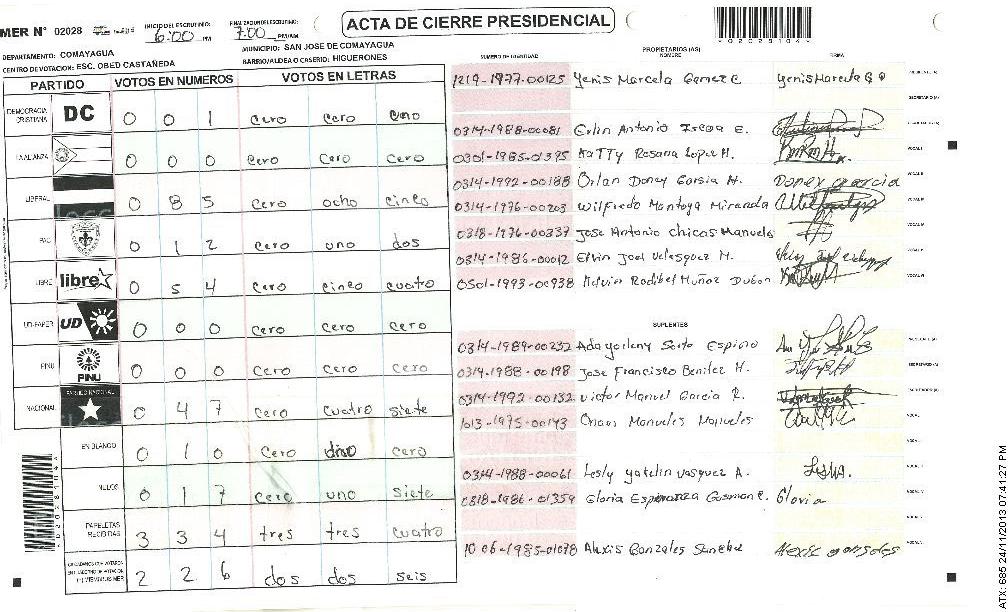 ACTA DE CIERRE PRESIDENCIAL
MER N° 02028
INICIO DEL ESCRUTINIO: 6:00 PM
FINALIZACION DEL ESCRUTINIO: 7:00 PM/AM
DEPARTAMENTO: COMAYAGUA
MUNICIPIO: SAN JOSE DE COMAYAGUA
CENTRO DE VOTACION: ESC. OBED CASTAÑEDA
BARRIO/ALDEA O CASERIO: HIGUERONES
PARTIDO VOTOS EN NUMEROS VOTOS EN LETRAS
DEMOCRACIA CRISTIANA DC 0 0 1 cero cero uno
LA ALIANZA 0 0 0 cero cero cero
LIBERAL 0 8 5 cero ocho cinco
PAC 0 1 2 cero uno dos
LIBRE libre 0 5 4 cero cinco cuatro
UD-FAPER UD 0 0 0 cero cero cero
PINU PINU 0 0 0 cero cero cero
NACIONAL PARTIDO NACIONAL 0 4 7 cero cuatro siete
EN BLANCO 0 1 0 cero uno cero
NULOS 0 1 7 cero uno siete
PAPELETAS RECIBIDAS 3 3 4 tres tres cuatro
2 2 6 dos dos seis
NUMERO DE IDENTIDAD PROPIETARIOS (AS) NOMBRE FIRMA
1219-1977-00125 Yenis Marcela Gamez C. Yenis Marcela G
SECRETARIO (A)
0314-1988-00081 Erlin Antonio E.
0301-1985-01395 Katty Rosana Lopez H.
0314-1992-00188 Orlan Doney Garcia H. Doney Garcia
0314-1976-00203 Wilfredo Montoya Miranda
0318-1976-00337 Jose Antonio Chicas Manueles
0314-1986-00012 Elvin Joel Velasquez M.
0501-1993-00938 Kelvin Rodibel Muñoz Dubon
SUPLENTES
0314-1989-00232 Ada Espino
0314-1988-00198 Jose Francisco Benitez H.
0314-1992-00132 Victor Manuel Garcia R.
1013-1975-00143 Manueles Manueles
0314-1988-00061 Lesly Yakelin Vasquez A.
0818-1986-01359 Gloria Esperanza Guzman C. Gloria
1006-1985-01078 Alexis Gonzales Sanchez Alexis Gonsales
ATX: 685 24/11/2013 07:41:27 PM